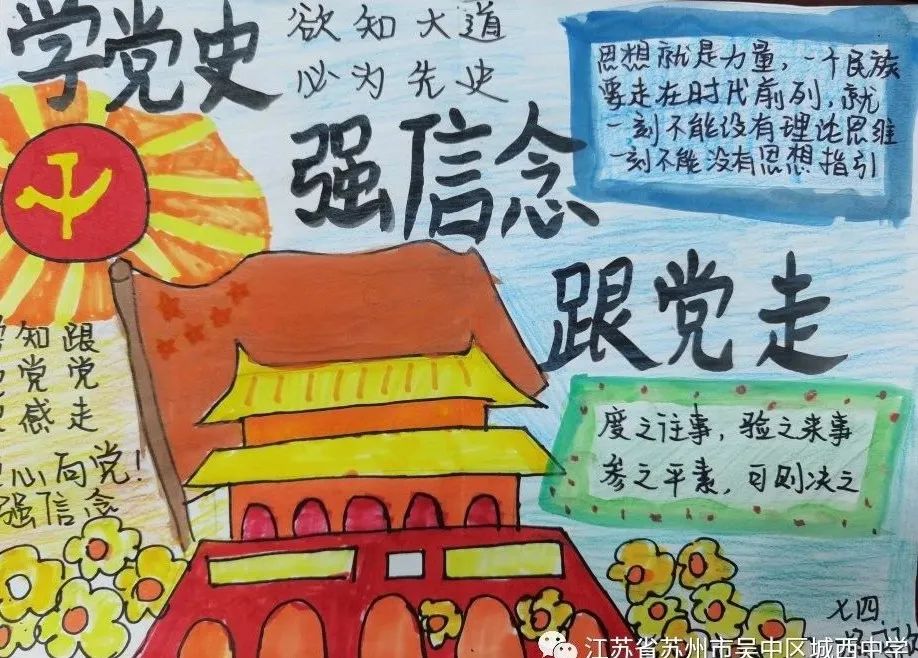 学党史
欲知大道
必为先史
强信念
跟党走
思想就是力量，一个民族
要走在时代前列，就
一刻不能没有理论思维
一刻不能没有思想指引
知跟
党党
感走
心向党！
强信念
度之往事，验之来事
参之平素，可则决之
七四
江苏省苏州市吴中区城西中学